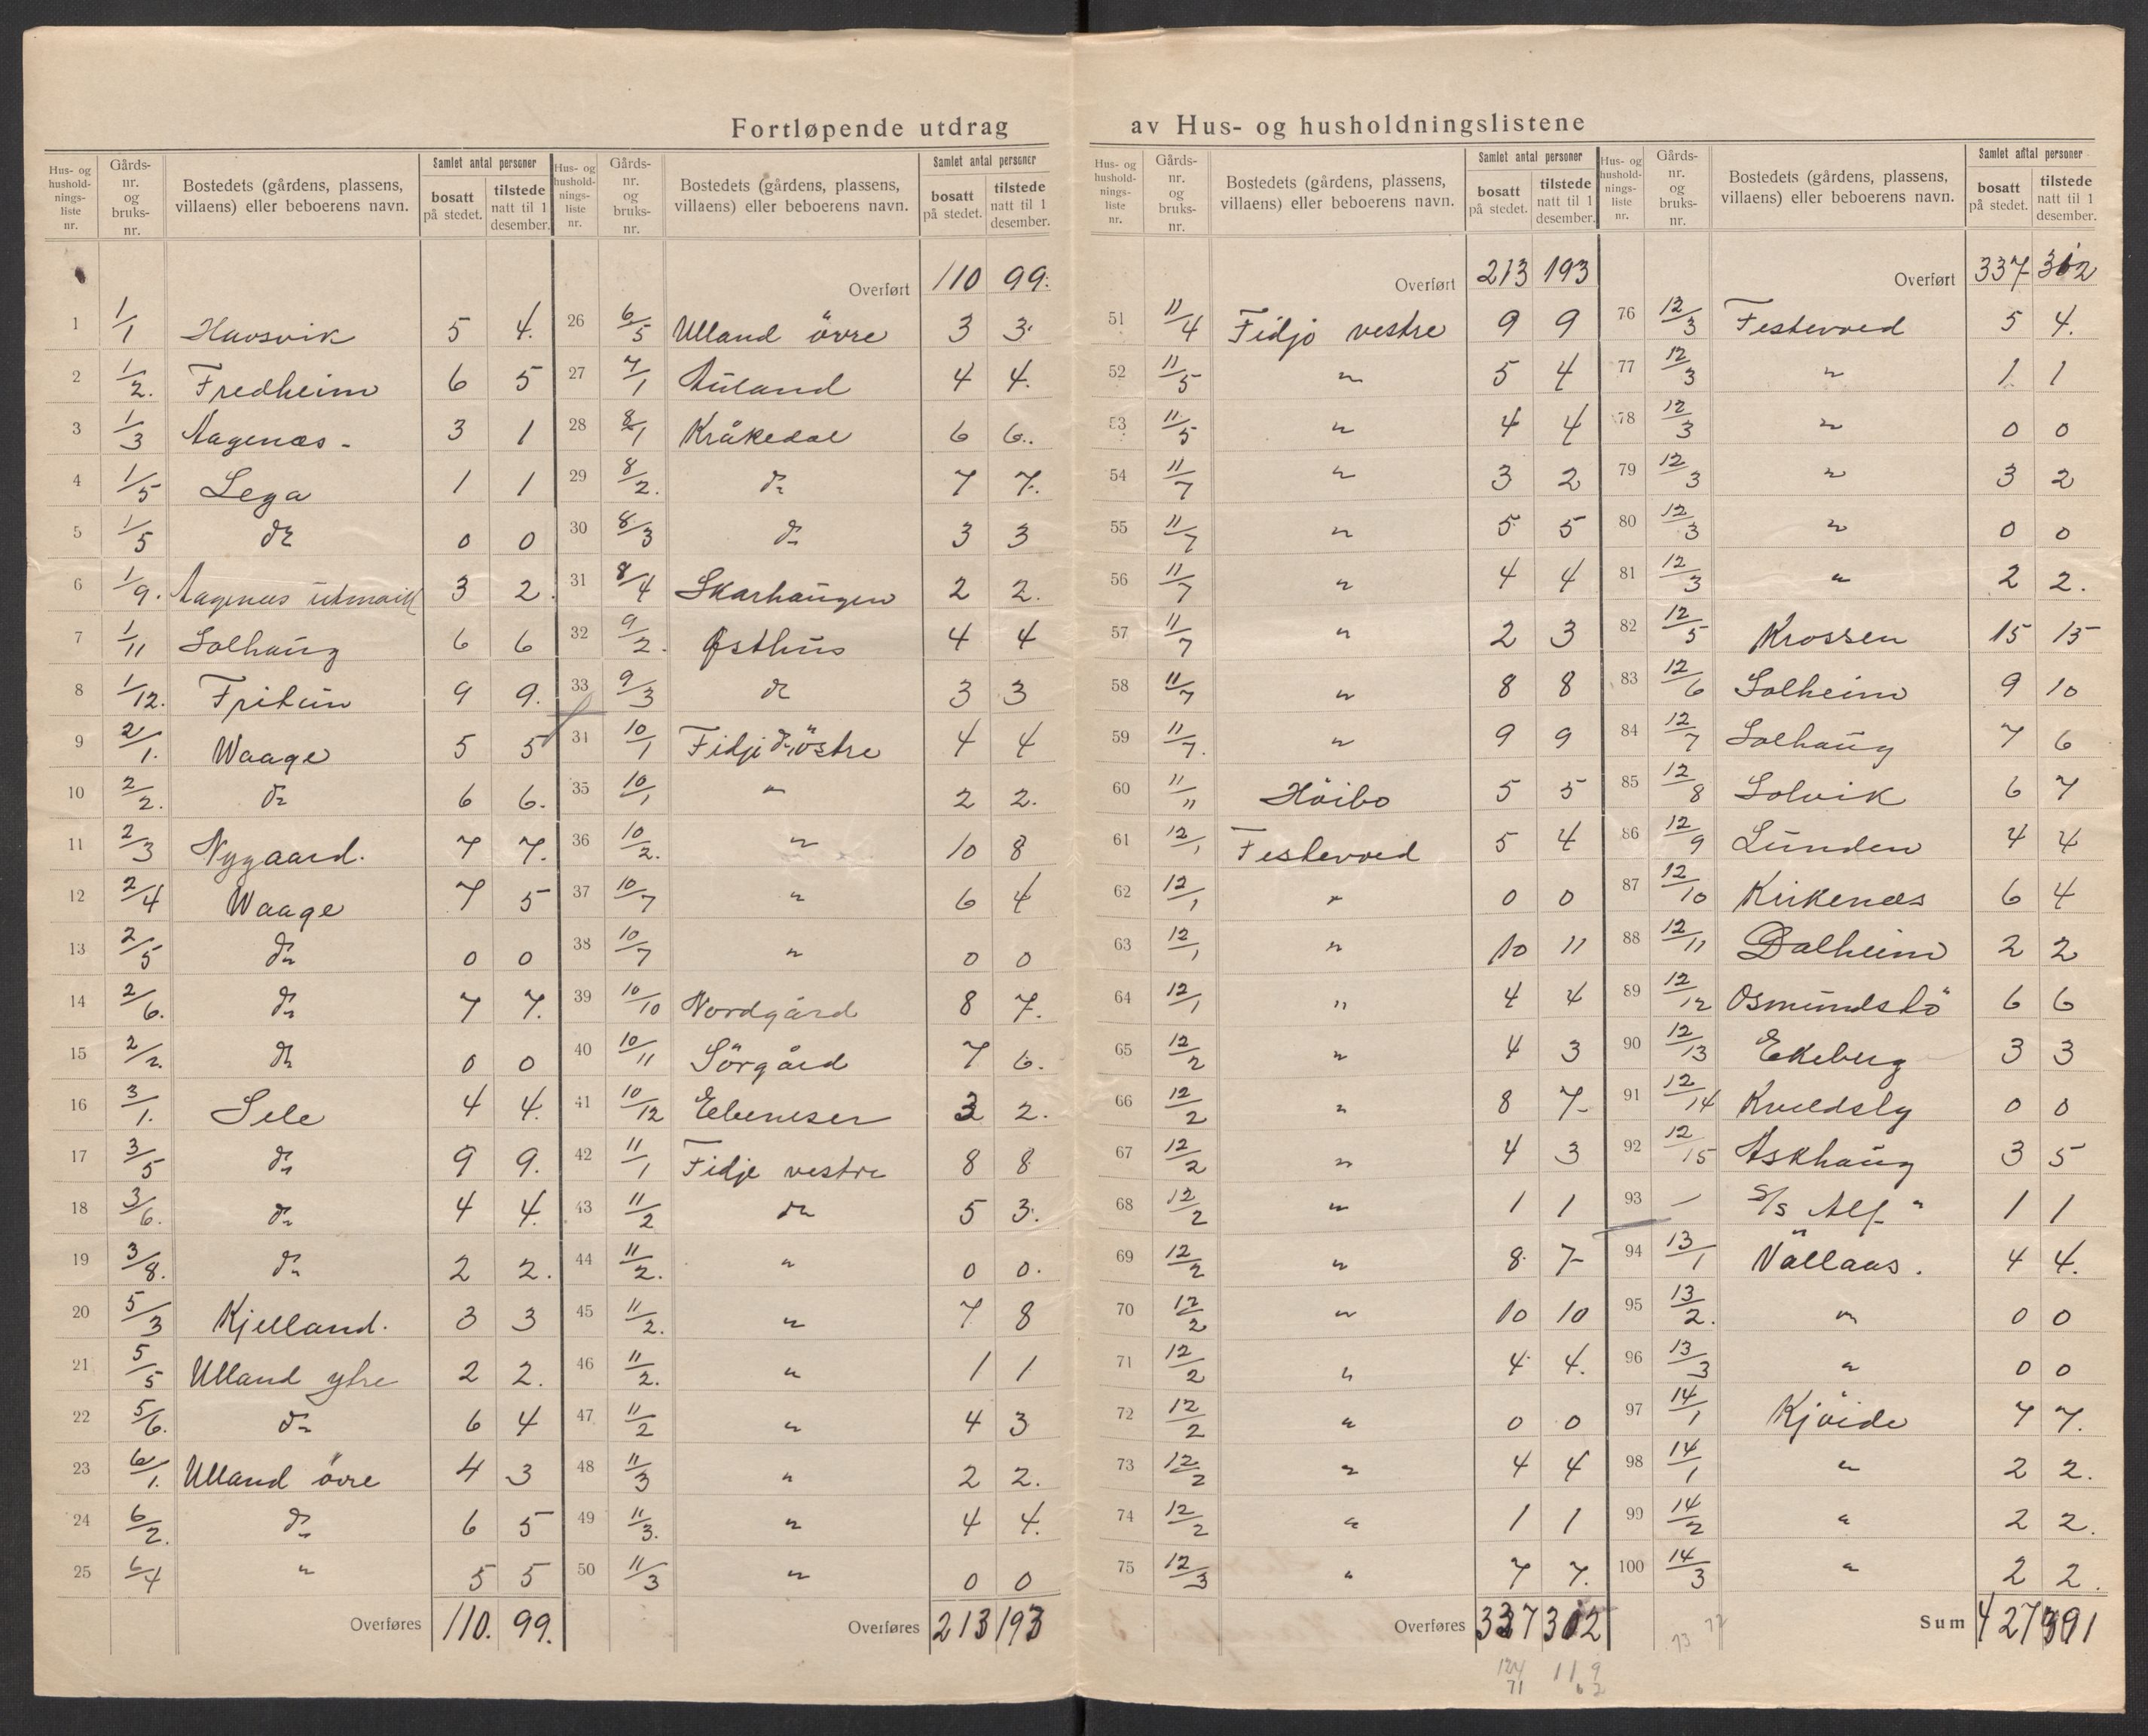 Fortløpende utdrag av Hus- og husholdningslistene
Hus- og hushold-nings-liste nr. Gårds-nr. og bruks-nr. Bostedets (gårdens, plassens, villaens) eller beboerens navn. Samlet antal personer bosatt på stedet. tilstede natt til 1 desember.
1 1/1 Havsvik 5 4.
2 1/2. Fredheim 6 5
3 1/3 Aagenæs - 3 1
4 1/5 Lega 1 1
5 1/5 do 0 0
6 1/9. Aagenæs utmark 3 2.
7 1/11 Solhaug 6 6
8 1/12. Fritun 9 9.
9 2/1. Waage 5 5
10 2/2. do 6 6.
11 2/3 Nygaard. 7 7.
12 2/4 Waage 7 5
13 2/5 do 0 0
14 2/6. do 7 7.
15 2/2. do 0 0
16 3/1. Sele 4 4.
17 3/5 do 9 9.
18 3/6. do 4 4.
19 3/8. do 2 2.
20 5/3 Kjelland. 3 3
21 5/5 Ulland ytre 2 2.
22 5/6. do 6 4
23 6/1. Ulland övre 4 3
24 6/2. do 6 5
25 6/4 " 5 5
Overføres 110. 99.
Hus- og hushold-nings-liste nr. Gårds-nr. og bruks-nr. Bostedets (gårdens, plassens, villaens) eller beboerens navn. Samlet antal personer bosatt på stedet. tilstede natt til 1 desember.
Overført 110 99.
26 6/5 Ulland övre 3 3.
27 7/1 Auland 4 4.
28 8/1 Kråkedal 6 6.
29 8/2. do 7 7.
30 8/3 do 3 3
31 8/4 Skarhaugen 2 2.
32 9/2. Østhus 4 4
33 9/3 do 3 3
34 10/1 Fidje östre 4 4
35 10/1 " 2 2.
36 10/2. " 10 8
37 10/7 " 6 4
38 10/7 " 0 0
39 10/10 Nordgård 8 7.
40 10/11 Sörgård 7 6.
41 10/12 Ebeneser 3 2.
42 11/1 Fidje vestre 8 8
43 11/2 do 5 3.
44 11/2. " 0 0.
45 11/2. " 7 8
46 11/2. " 1 1
47 11/2 " 4 3
48 11/3 " 2 2.
49 11/3. " 4 4.
50 11/3 " 0 0
Overføres 213 193
Hus- og hushold-nings-liste nr. Gårds-nr. og bruks-nr. Bostedets (gårdens, plassens, villaens) eller beboerens navn. Samlet antal personer bosatt på stedet. tilstede natt til 1 desember.
Overført 213 193
51 11/4 Fidje vestre 9 9
52 11/5 " 5 4
53 11/5 " 4 4
54 11/7 " 3 2
55 11/7 " 5 5
56 11/7 " 4 4
57 11/7 " 2 3
58 11/7 " 8 8
59 11/7. " 9 9
60 11/11 Höibo 5 5
61 12/1 Festervoed 5 4
62 12/1 " 0 0
63 12/1 " 10 11
64 12/1 " 4 4
65 12/2 " 4 3
66 12/2 " 8 7
67 12/2 " 4 3
68 12/2 " 1 1
69 12/2 " 8 7
70 12/2 " 10 10
71 12/2 " 4 4.
72 12/2 " 0 0
73 12/2 " 4 4
74 12/2 " 1 1
75 12/3 " 7 7.
Overføres 337 312
124 119
71 62
Hus- og hushold-nings-liste nr. Gårds-nr. og bruks-nr. Bostedets (gårdens, plassens, villaens) eller beboerens navn. Samlet antal personer bosatt på stedet. tilstede natt til 1 desember.
Overført 337 312
76 12/3 Festervoed 5 4.
77 12/3 " 1 1
78 12/3 " 0 0
79 12/3 " 3 2
80 12/3 " 0 0
81 12/3 " 2 2.
82 12/5 Krossen 15 15
83 12/6 Solheim 9 10
84 12/7 Solhaug 7 6
85 12/8 Solvik 6 7
86 12/9 Lunden 4 4
87 12/10 Kirkenæs 6 4
88 12/11 Dalheim 2 2
89 12/12 Osmundsbö 6 6
90 12/13 Ekeberg 3 3
91 12/14 Kveldsly 0 0
92 12/15 Askhaug 3 5
93 — S/S Alf " 1 1
94 13/1 Vållaas. 4 4.
95 13/2. " 0 0
96 13/3 " 0 0
97 14/1 Kjöide 7 7.
98 14/1 " 2 2.
99 14/2 " 2 2.
100 14/3 " 2 2.
Sum 427 391